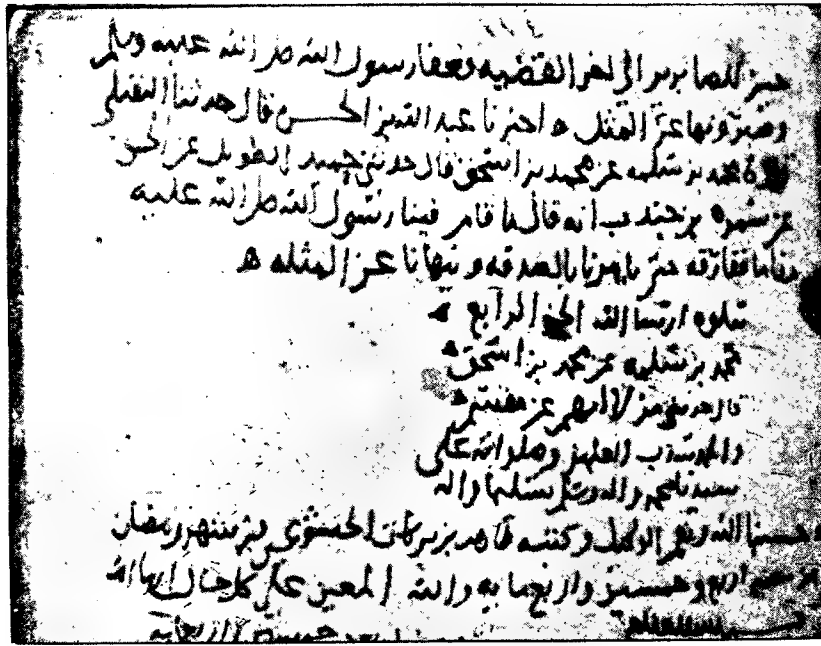 ١١٤
خير للصابرين الى اخر القصه فعفا رسول الله صلى الله عليه وسلم
وصبر ونهى عن المثل ه اخبرنا عبد الله بن الحسن قال حدثنا النفيلي
محمد بن سلمه عن محمد بن اسحق قال حدثني حميد الطويل عن الحسن
عن سمره بن جندب انه قال ما قام فينا رسول الله صلى الله عليه
مقاما ففارقه حتى يامرنا بالصدقه وينهانا عن المثله ه
يتلوه ان شا الله الجز الرابع
محمد بن سلمه عن محمد بن اسحق
قال حدثني من لا اتهم عن مقسم
والحمد لله رب العلمين وصلواته على
سيدنا محمد واله وسلم تسليما
حسبنا الله ونعم الوكيل وكتبه طاهر بن بركات الخشوعي في شهر رمضان
من سنه اربع وخمسين واربعمايه والله المعين على كل حال ان شا الله